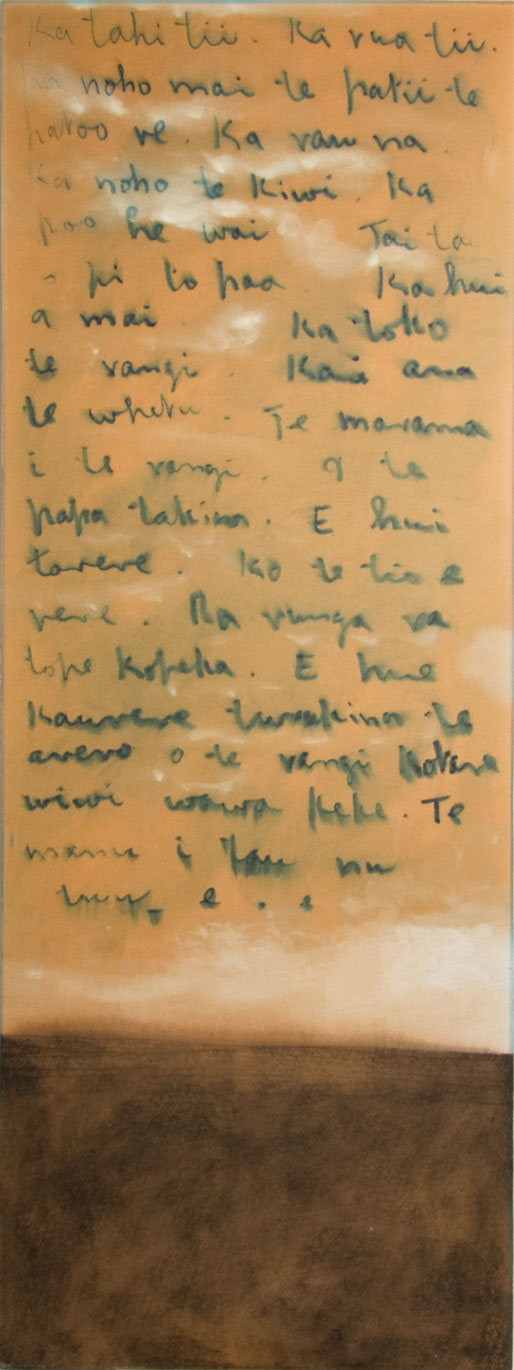 Ka tahi tii. Ka rua tii.
Ka noho mai te patii te
patoo re. Ka rau na.
Ka noho te Kiwi. Ka
poo he wai Tai ta
o pi to paa. Ka hui
a mai. Ka toko
te rangi. Kaia ana
te whetu. Te marama
i te rangi. o te
papa takina. E hui
tarere. Ko te tio e
rere. Ra runga ra
tope Kopeka. E hue
Kaurere turakina te
arero o te rangi Kotare
wiwi wawa keke. Te
manu i tau nu
tuu_ e . e